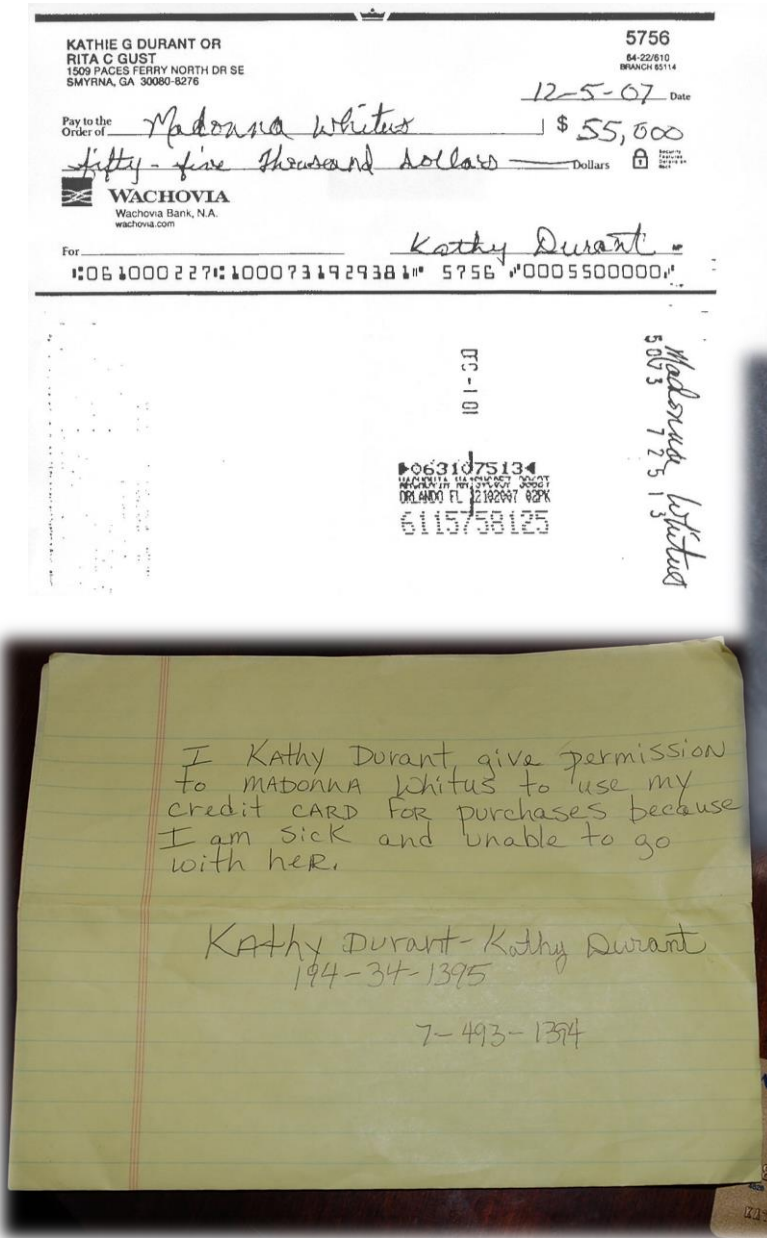 KATHIE G DURANT OR
RITA C GUST
1509 PACES FERRY NORTH DR SE
SMYRNA, GA 30080-8276
5756
64-22/610
BRANCH 65114
12-5-07 Date
Pay to the
Order of Madonna Whitus $ 55,000
fifty-five thousand dollars Dollars
WACHOVIA
Wachovia Bank, N.A.
wachovia.com
For Kathy Durant
061000227 1000731929381 5756 0005500000
Madonna Whitus
5073 72513
063107513
ORLANDO FL 12102007 02PK
6115758125
I KAthy Durant, give permission
to MADONNA Whitus to use my
credit CARD FOR purchases because
I am sick and unable to go
with heR.
KAthy Durant - Kathy Durant
194-34-1395
7-493-1394